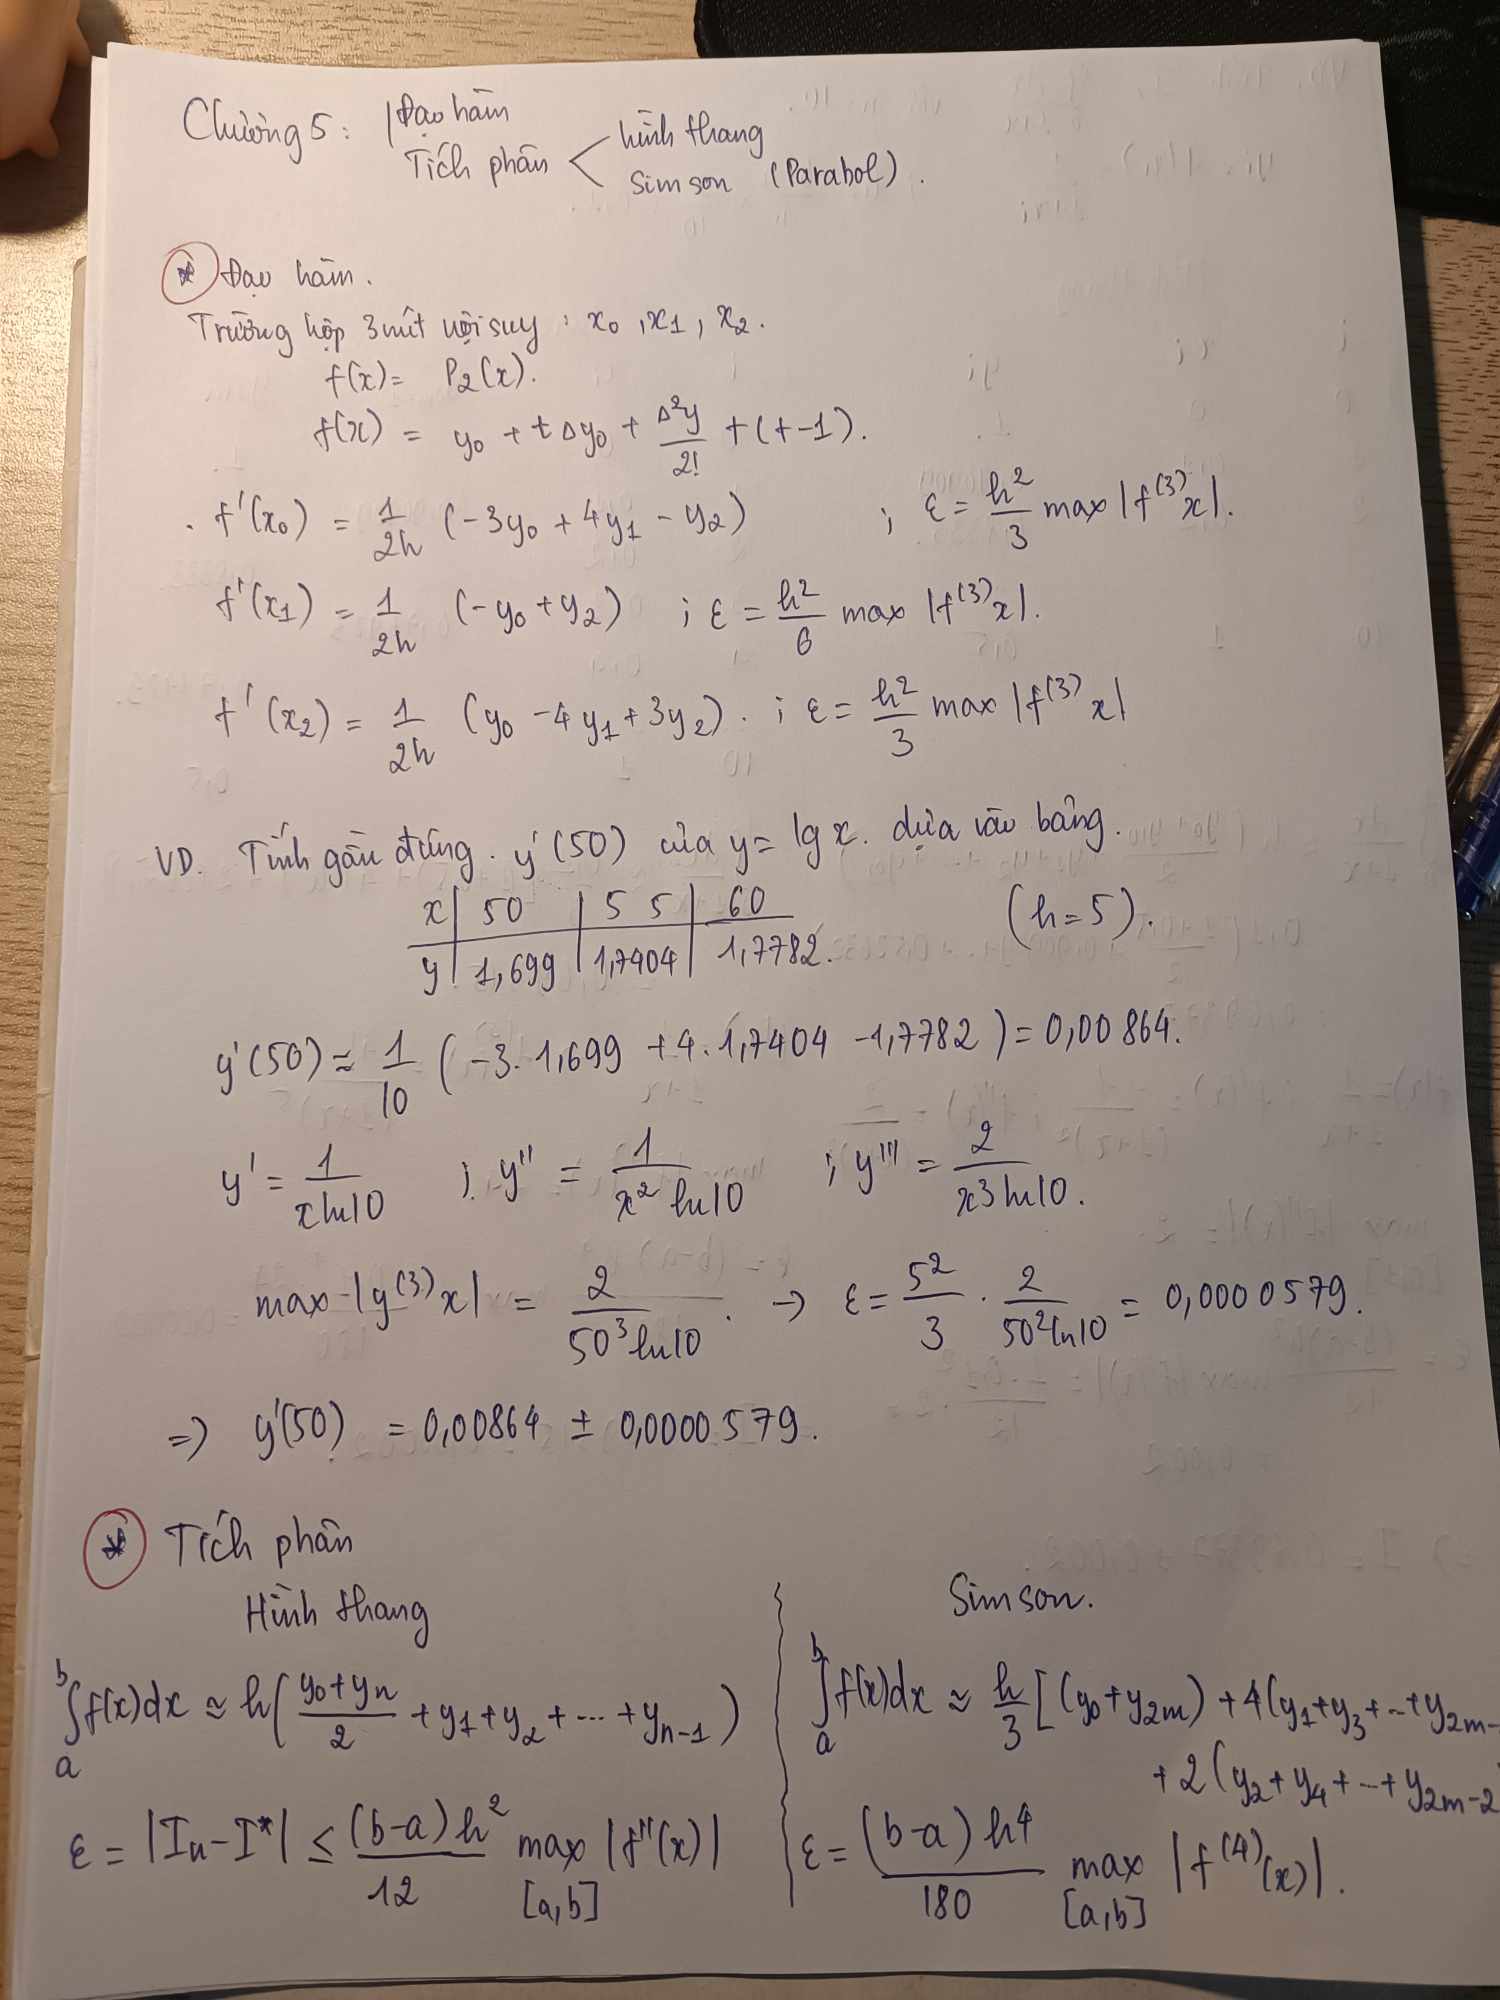 Chương 5: | Đạo hàm
Tích phân < hình thang
Simson (Parabol).
* Đạo hàm.
Trường hợp 3 nút nội suy: x₀, x₁, x₂.
f(x) = P₂(x).
f(x) = y₀ + tΔy₀ + Δ²y/2! + (t-1).
. f'(x₀) = 1/2h (-3y₀ + 4y₁ - y₂) ; ε = h²/3 max |f⁽³⁾x|.
f'(x₁) = 1/2h (-y₀ + y₂) ; ε = h²/6 max |f⁽³⁾x|.
f'(x₂) = 1/2h (y₀ - 4y₁ + 3y₂). ; ε = h²/3 max |f⁽³⁾x|
VD. Tính gần đúng. y'(50) của y = lg x. dựa vào bảng.
x | 50 | 55 | 60 (h=5).
y | 1,699 | 1,7404 | 1,7782.
y'(50) ≈ 1/10 (-3. 1,699 + 4. 1,7404 - 1,7782) = 0,00864.
y' = 1/xln10 ; y'' = 1/x² ln10 ; y''' = 2/x³ ln10.
max |y⁽³⁾x| = 2/50³ ln10 . → ε = 5²/3 . 2/50² ln10 = 0,0000579.
⇒ y'(50) = 0,00864 ± 0,0000579.
* Tích phân
Hình thang
∫ₐᵇ f(x)dx ≈ h(y₀+yₙ/2 + y₁ + y₂ + ... + yₙ₋₁)
ε = |Iₙ - I*| ≤ (b-a)h²/12 max[a,b] |f''(x)|
Simson.
∫ₐᵇ f(x)dx ≈ h/3 [(y₀ + y₂ₘ) + 4(y₁ + y₃ + ... + y₂ₘ₋
+ 2(y₂ + y₄ + ... + y₂ₘ₋₂
ε = (b-a) h⁴/180 max[a,b] |f⁽⁴⁾(x)|.